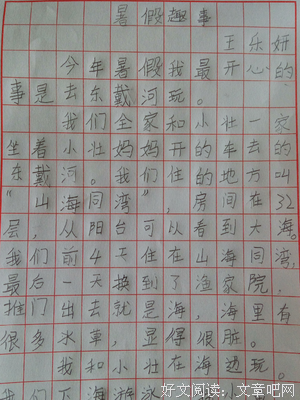 暑假趣事
王乐妍
今年暑假我最开心的
事是去东戴河玩。
我们全家和小壮一家
坐着小壮妈妈开的车去的
东戴河。我们住的地方叫
“山海同湾”，房间在32
层，从阳台可以看到大海。
我们前4天住在山海同湾，
最后一天换到了渔家院，
推门出去就是海，海里有
很多水草，显得很脏。
我和小壮在海边玩。
我们下海游泳
好文阅读：文章吧网